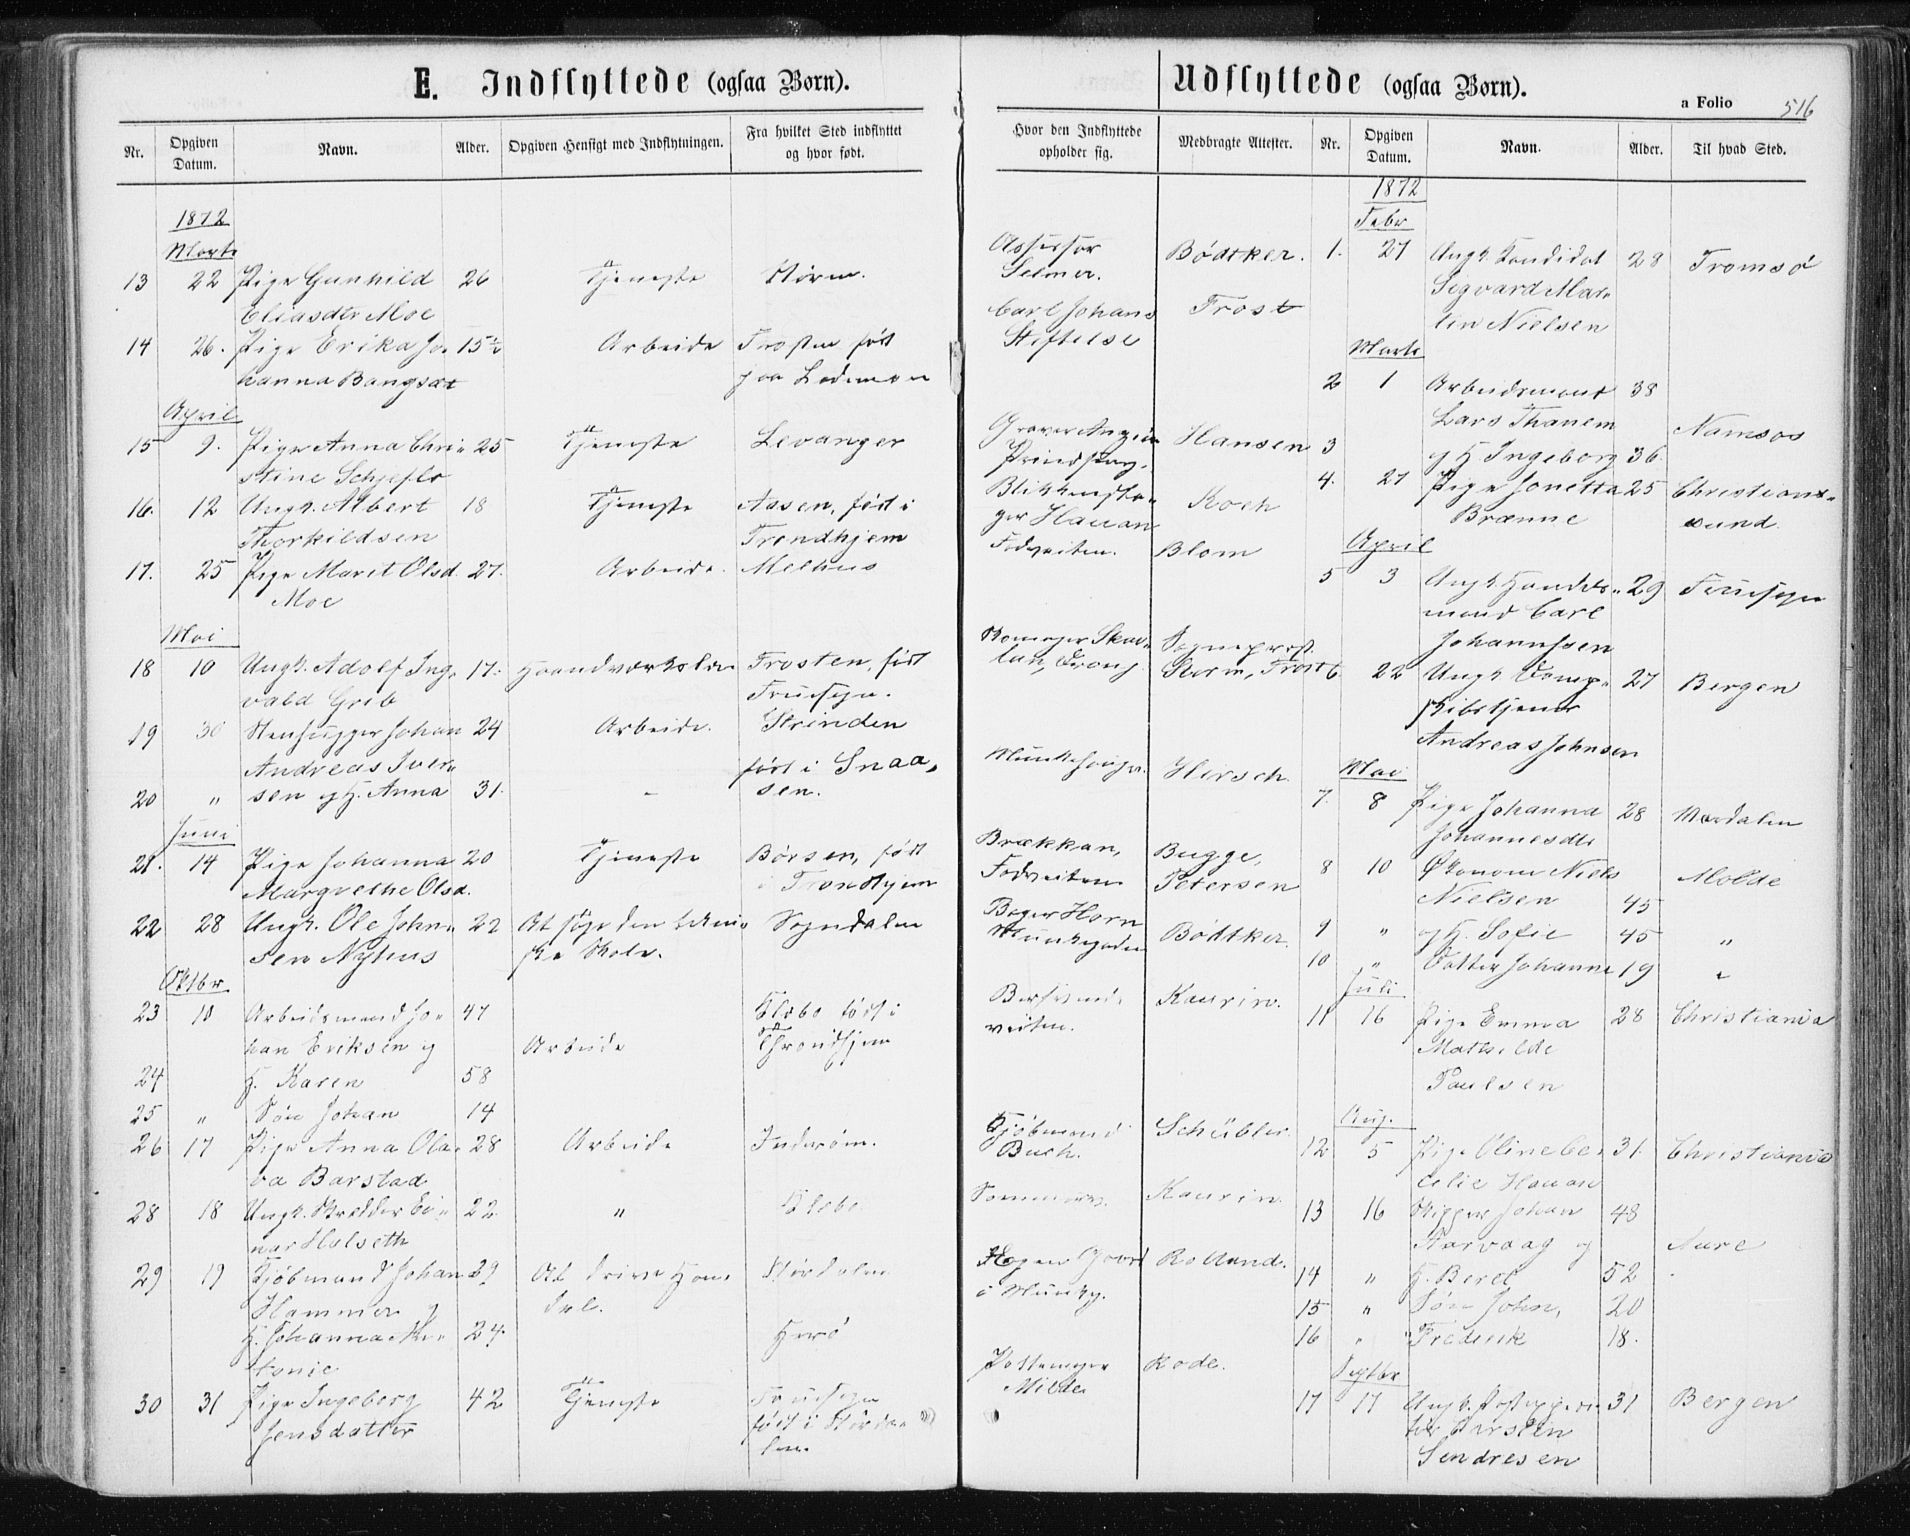 E. Indflyttede (ogsaa Børn).
Nr. Opgiven Datum. Navn. Alder. Opgiven Hensigt med Indflytningen. Fra hvilket Sted indflyttet og hvor født. Hvor den Indflyttede opholder sig. Medbragte Attester.
1872
Marts
13 22 Pige Gunhild 26 Tjeneste Størn. Assessor Bødtker.
Eliasdtr Moe Selmer.
14 26. Pige Erika Jo- 15½ Arbeide Frosten født Carl Johans Frost
hanna Bangsat paa Stiftelse
April
15 9. Pige Anna Chri- 25 Tjeneste Levanger Graver Hansen
stine Schjeflo
16. 12 Ungk. Albert 18 Tjeneste Aasen, født i Blikkensla- Koch
Thorkildsen Trondhjem ger Hauan
17. 25 Pige Marit Olsd. 27. Arbeide. Melhus Fodveiten. Blom
Moe
Mai
18 10 Ungk. Adolf Ing- 17. Haandværkslære Frosten, født Sogneprest
vald Grib Fruesogn. Storm, Frost
19 30 Stenhugger Johan 24 Arbeide. Strinden
Andreas Iver- født i Snaa- Hirsch.
20 " sen og H. Anna 31. - sen.
Juni
21. 14 Pige Johanna 20 Tjeneste Børsen, født Brækkan, Bugge,
Margrethe Olsd. i Trondhjem Fodveiten Petersen
22 28 Ungk. Ole John- 22 At søge den tekni- Sogndalen Bager Horn Bødtker.
sen Nyhus ske Skole. Munkegaden
Oktbr
23 10 Arbeidsmand Jo- 47 Klæbo født i Kaurin.
han Eriksen og Arbeide Throndhjem veiten.
24 H. Karen 58
25 " Søn Johan 14
26 17 Pige Anna Ola- 28 Arbeide Inderøen. Kjøbmand Schübler
va Barstad Buch.
28 18 Ungk. Skrædder Ei- 22 " Klæbo Kaurin.
nar Halseth
29 19 Kjøbmand Johan 29 At drive Han- Størdalen Rolland.
Hammer og del. i Munkg.
H. Johanna 24. Herø
tonie
30 31 Pige Ingeborg 42 Tjeneste Fruesogn Rode.
Jensdatter født i Størda- Milde
len.
Udflyttede (ogsaa Børn).
a Folio 516
Nr. Opgiven Datum. Navn. Alder. Til hvad Sted.
1872
Febr
1. 27 Ungk. Kandidat 28 Tromsø
Segvard Mar-
tin Nielsen
Marts
2 1 Arbeidsmand 38
Lars Thanem Namsos
3 og H. Ingeborg 36.
4. 27 Pige Jonetta 25 Christian-
Brænne sund
April
5 3 Ungk. Handels- 29 Fruesogn
mand Carl
Johannssen
6. 22 Ungk. Damp- 27 Bergen
skibstjener
Andreas Johnsen
Mai
7. 8 Pige Johanna 28 Værdalen
Johannesdtr
8 10 Økonom Niels Molde
Nielsen 45
9 " og H. Sofie 45 "
10 " Datter Johanne 19 "
Juli
11 16 Pige Emma 28 Christiania
Mathilde
Paulsen
Aug.
12 5 Pige Oline Ce- 31. Christiania
celie Hauan
13 16 Skipper Johan 48
Aarvaag og Aure
14 " H. Beret 52
15 " Søn John, 20
16 " " Frederik 18.
Septbr
17 17 Ungk. 31 Bergen
Sendresen